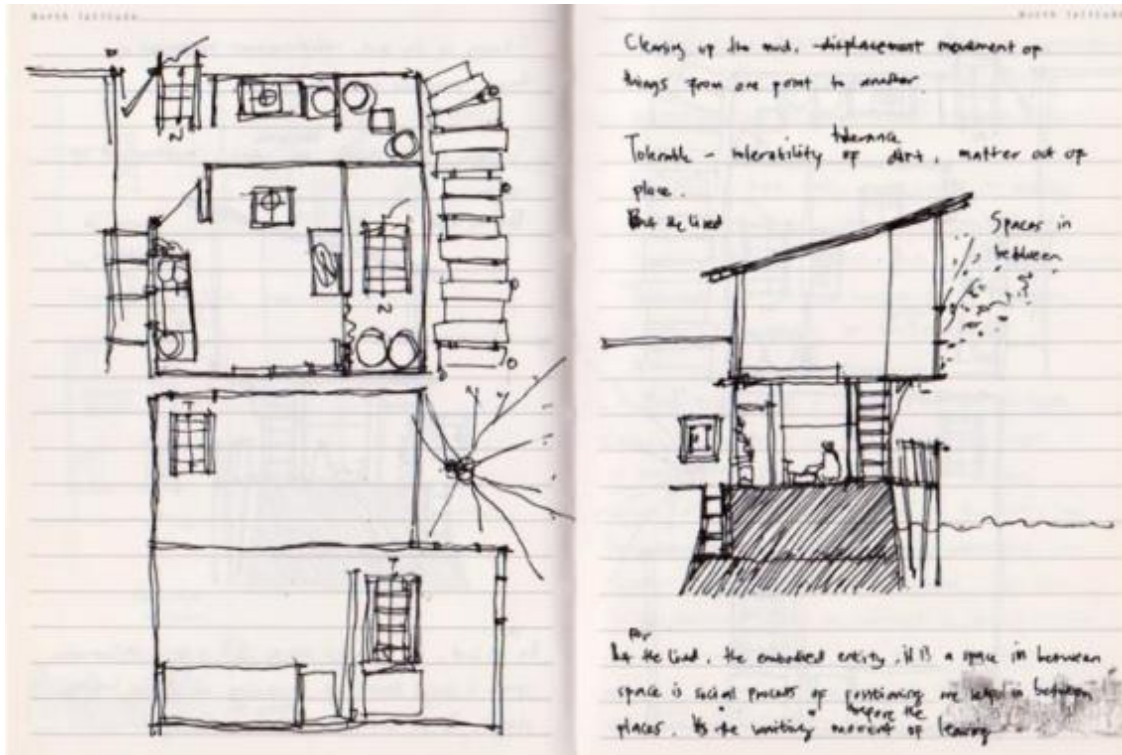 North latitude
North latitude
Clearing up the mud. displacement movement of
things from one point to another.
tolerance
Tolerable – tolerability of dirt, matter out of
place.
But the lived
Spaces in
between
For
the lived, the embodied entity, it is a space in between
space is social process of positioning one in between
before the
places. the waiting moment of leaving
N
N
T
T